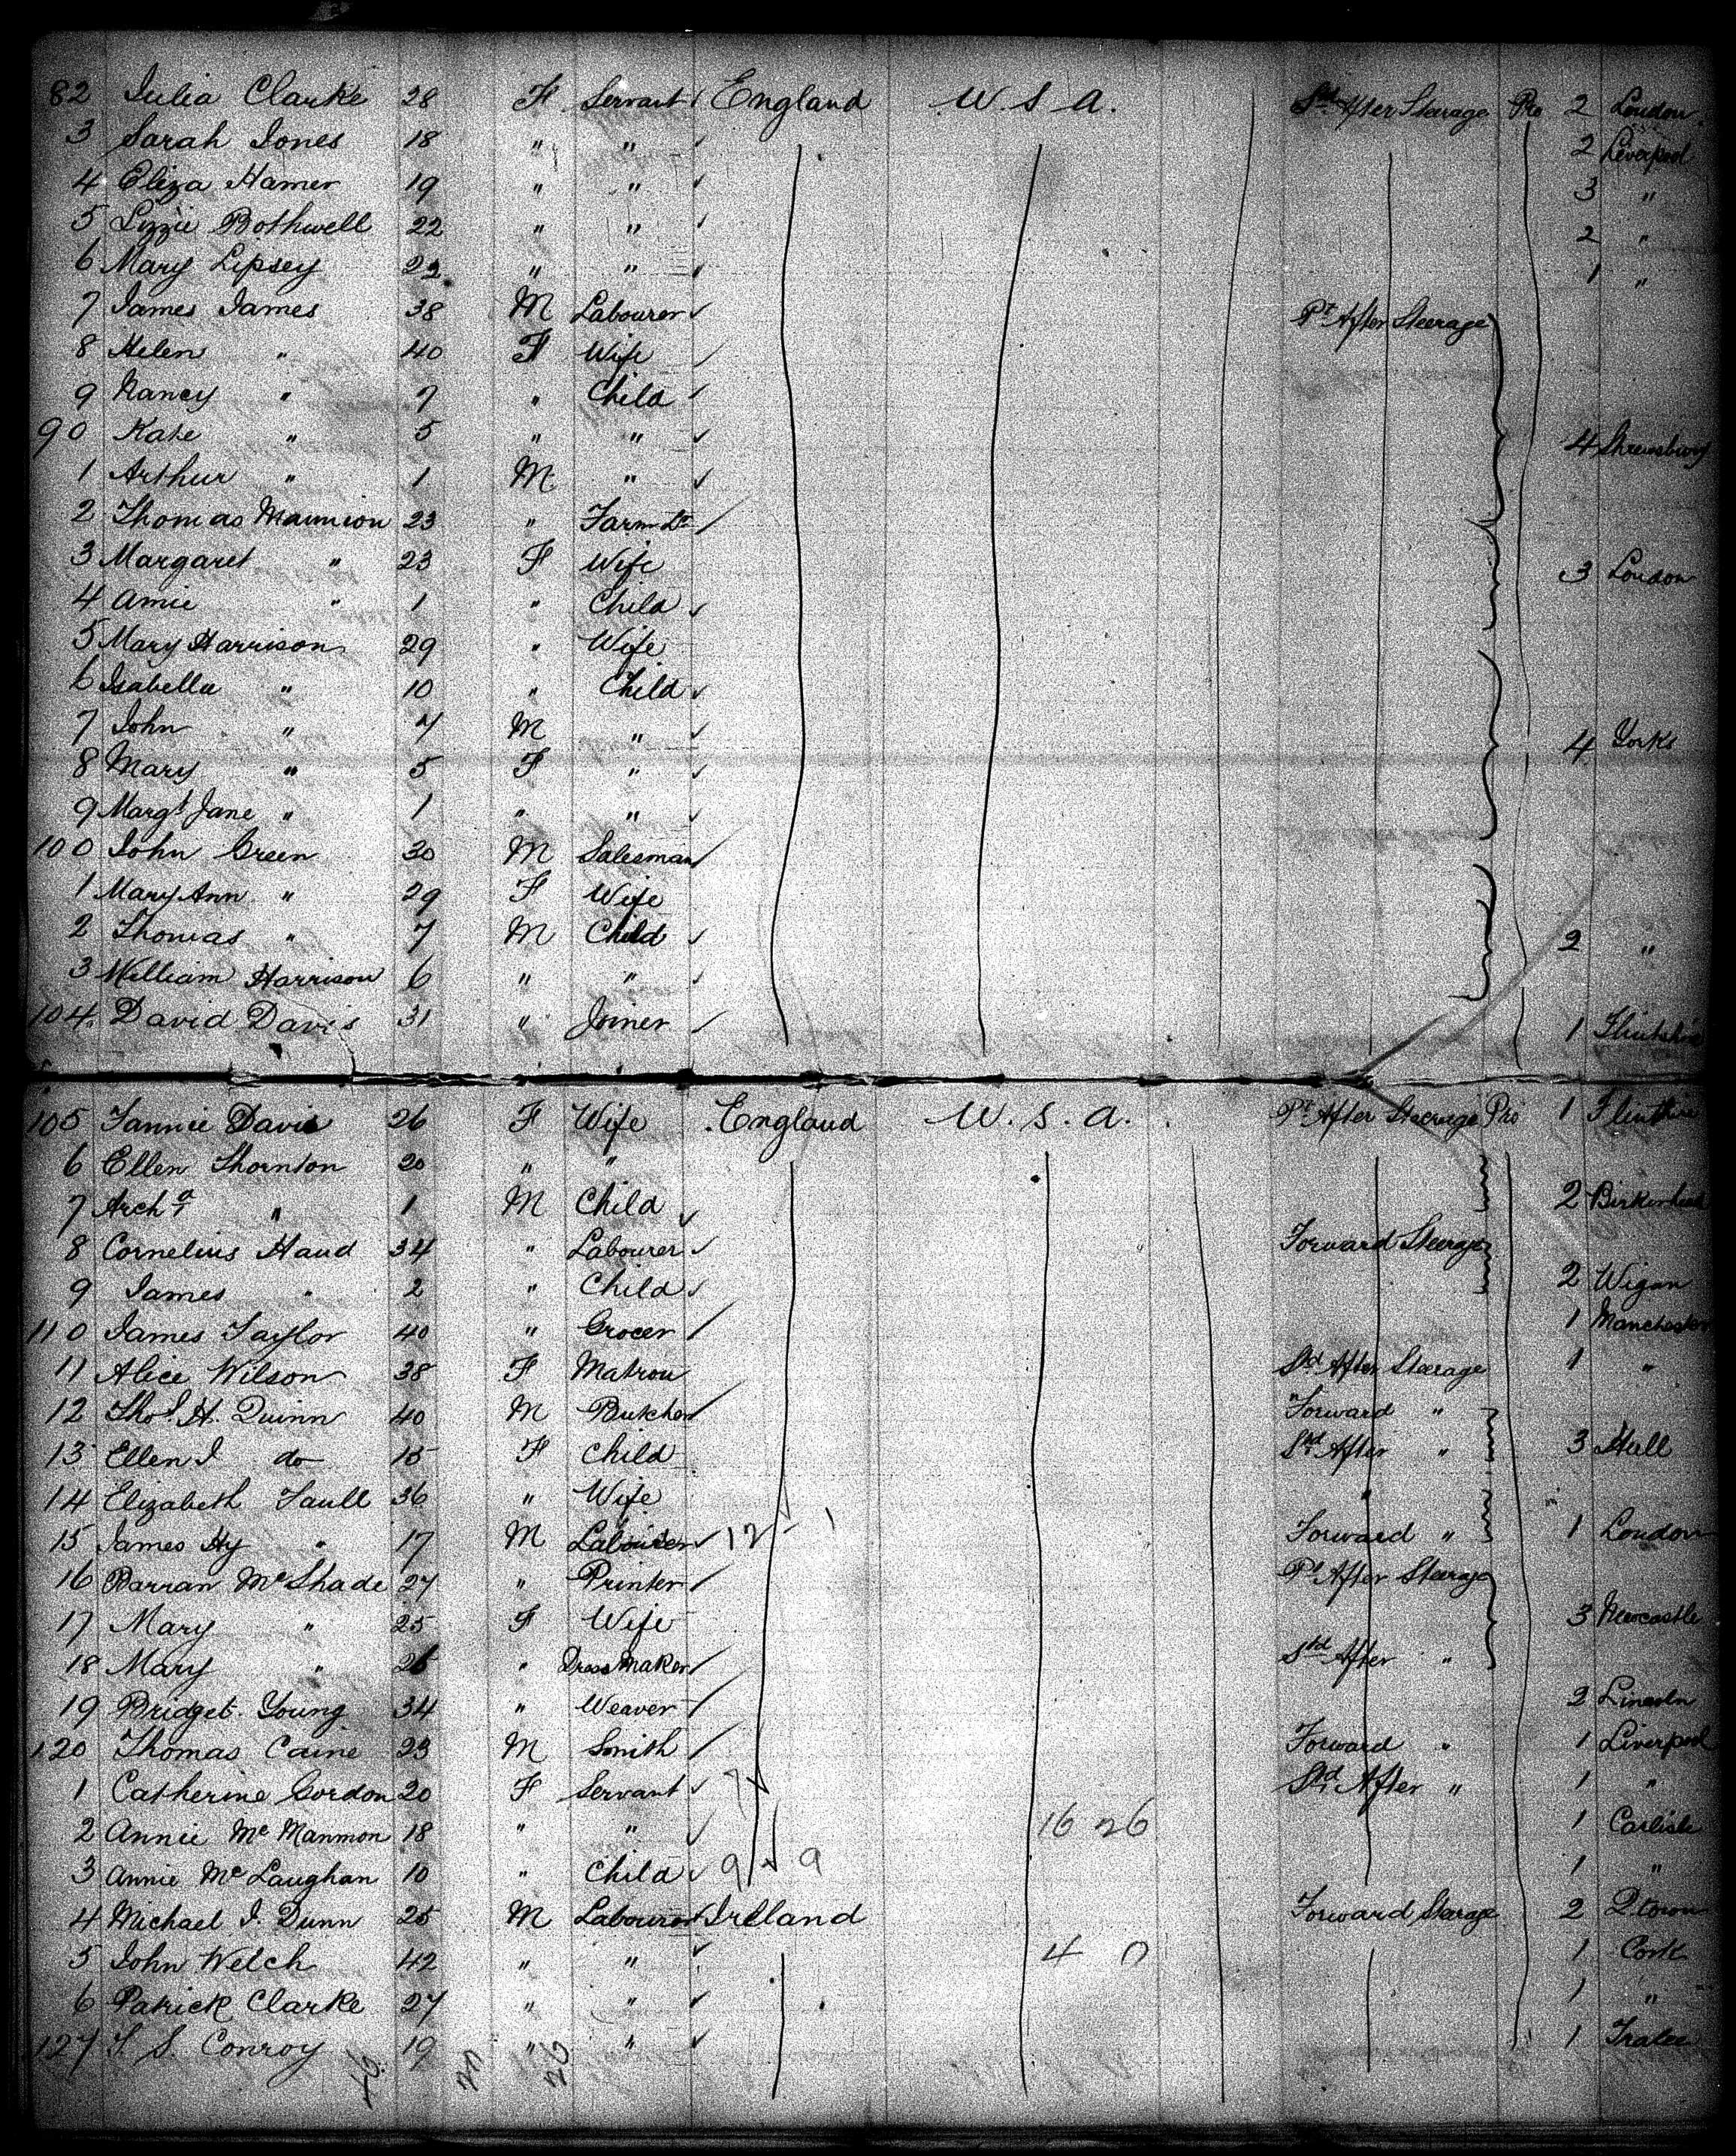 82 Julia Clarke 28 F Servant England U.S.A. Stbd After Steerage Pro 2 London
3 Sarah Jones 18 " " 2 Liverpool
4 Eliza Hamer 19 " " 3 "
5 Lizzie Bothwell 22 " " 2 "
6 Mary Lipsey 22 " " 1 "
7 James James 38 M Labourer Pt After Steerage
8 Helen " 40 F Wife
9 Nancy " 7 " Child
90 Kate " 5 " " 4 Shrewsbury
1 Arthur " 1 M "
2 Thomas 23 " Farm Lr
3 Margaret " 23 F Wife 3 London
4 Amie " 1 " Child
5 Mary Harrison 29 " Wife
6 Isabella " 10 " Child
7 John " 7 M "
8 Mary " 5 F " 4 Yorks
9 Margt Jane " 1 " "
100 John Green 30 M Salesman
1 Mary Ann " 29 F Wife
2 Thomas " 7 M Child 2 "
3 William Harrison 6 " "
104 David Davis 31 " Joiner 1 Flintshire
105 Fannie Davis 26 F Wife England U.S.A. Pt After Steerage Pro 1
6 Ellen Thornton 20 " "
7 Archd " 1 M Child 2 Birkenhead
8 Cornelius Haud 34 " Labourer Forward Steerage
9 James " 2 " Child 2 Wigan
110 James Taylor 40 " Grocer 1 Manchester
11 Alice Wilson 38 F Matron Stbd After Steerage 1 "
12 Thos H. Quinn 40 M Butcher Forward "
13 Ellen J do 15 F Child Stbd After " 3 Hull
14 Elizabeth Saull 36 " Wife "
15 James Hy " 17 M Labourer 12 - 1 Forward " 1 London
16 Barran McShade 27 " Printer Pt After Steerage
17 Mary " 25 F Wife 3 Newcastle
18 Mary " 26 " Dress Maker Stbd After "
19 Bridget Young 34 " Weaver 2 Lincoln
120 Thomas Caine 23 M Smith Forward " 1 Liverpool
1 Catherine Gordon 20 F Servant Stbd After " 1 "
2 Annie McManmon 18 " " 16 26 1 Carlisle
3 Annie McLaughan 10 " Child 9 9 1 "
4 Michael J. Dunn 25 M Labourer Ireland Forward Steerage 2 Qtown
5 John Welch 42 " " 4 0 1 Cork
6 Patrick Clarke 27 " " 1 "
127 T S. Conroy 19 " " 1 Tralee
46 20 26